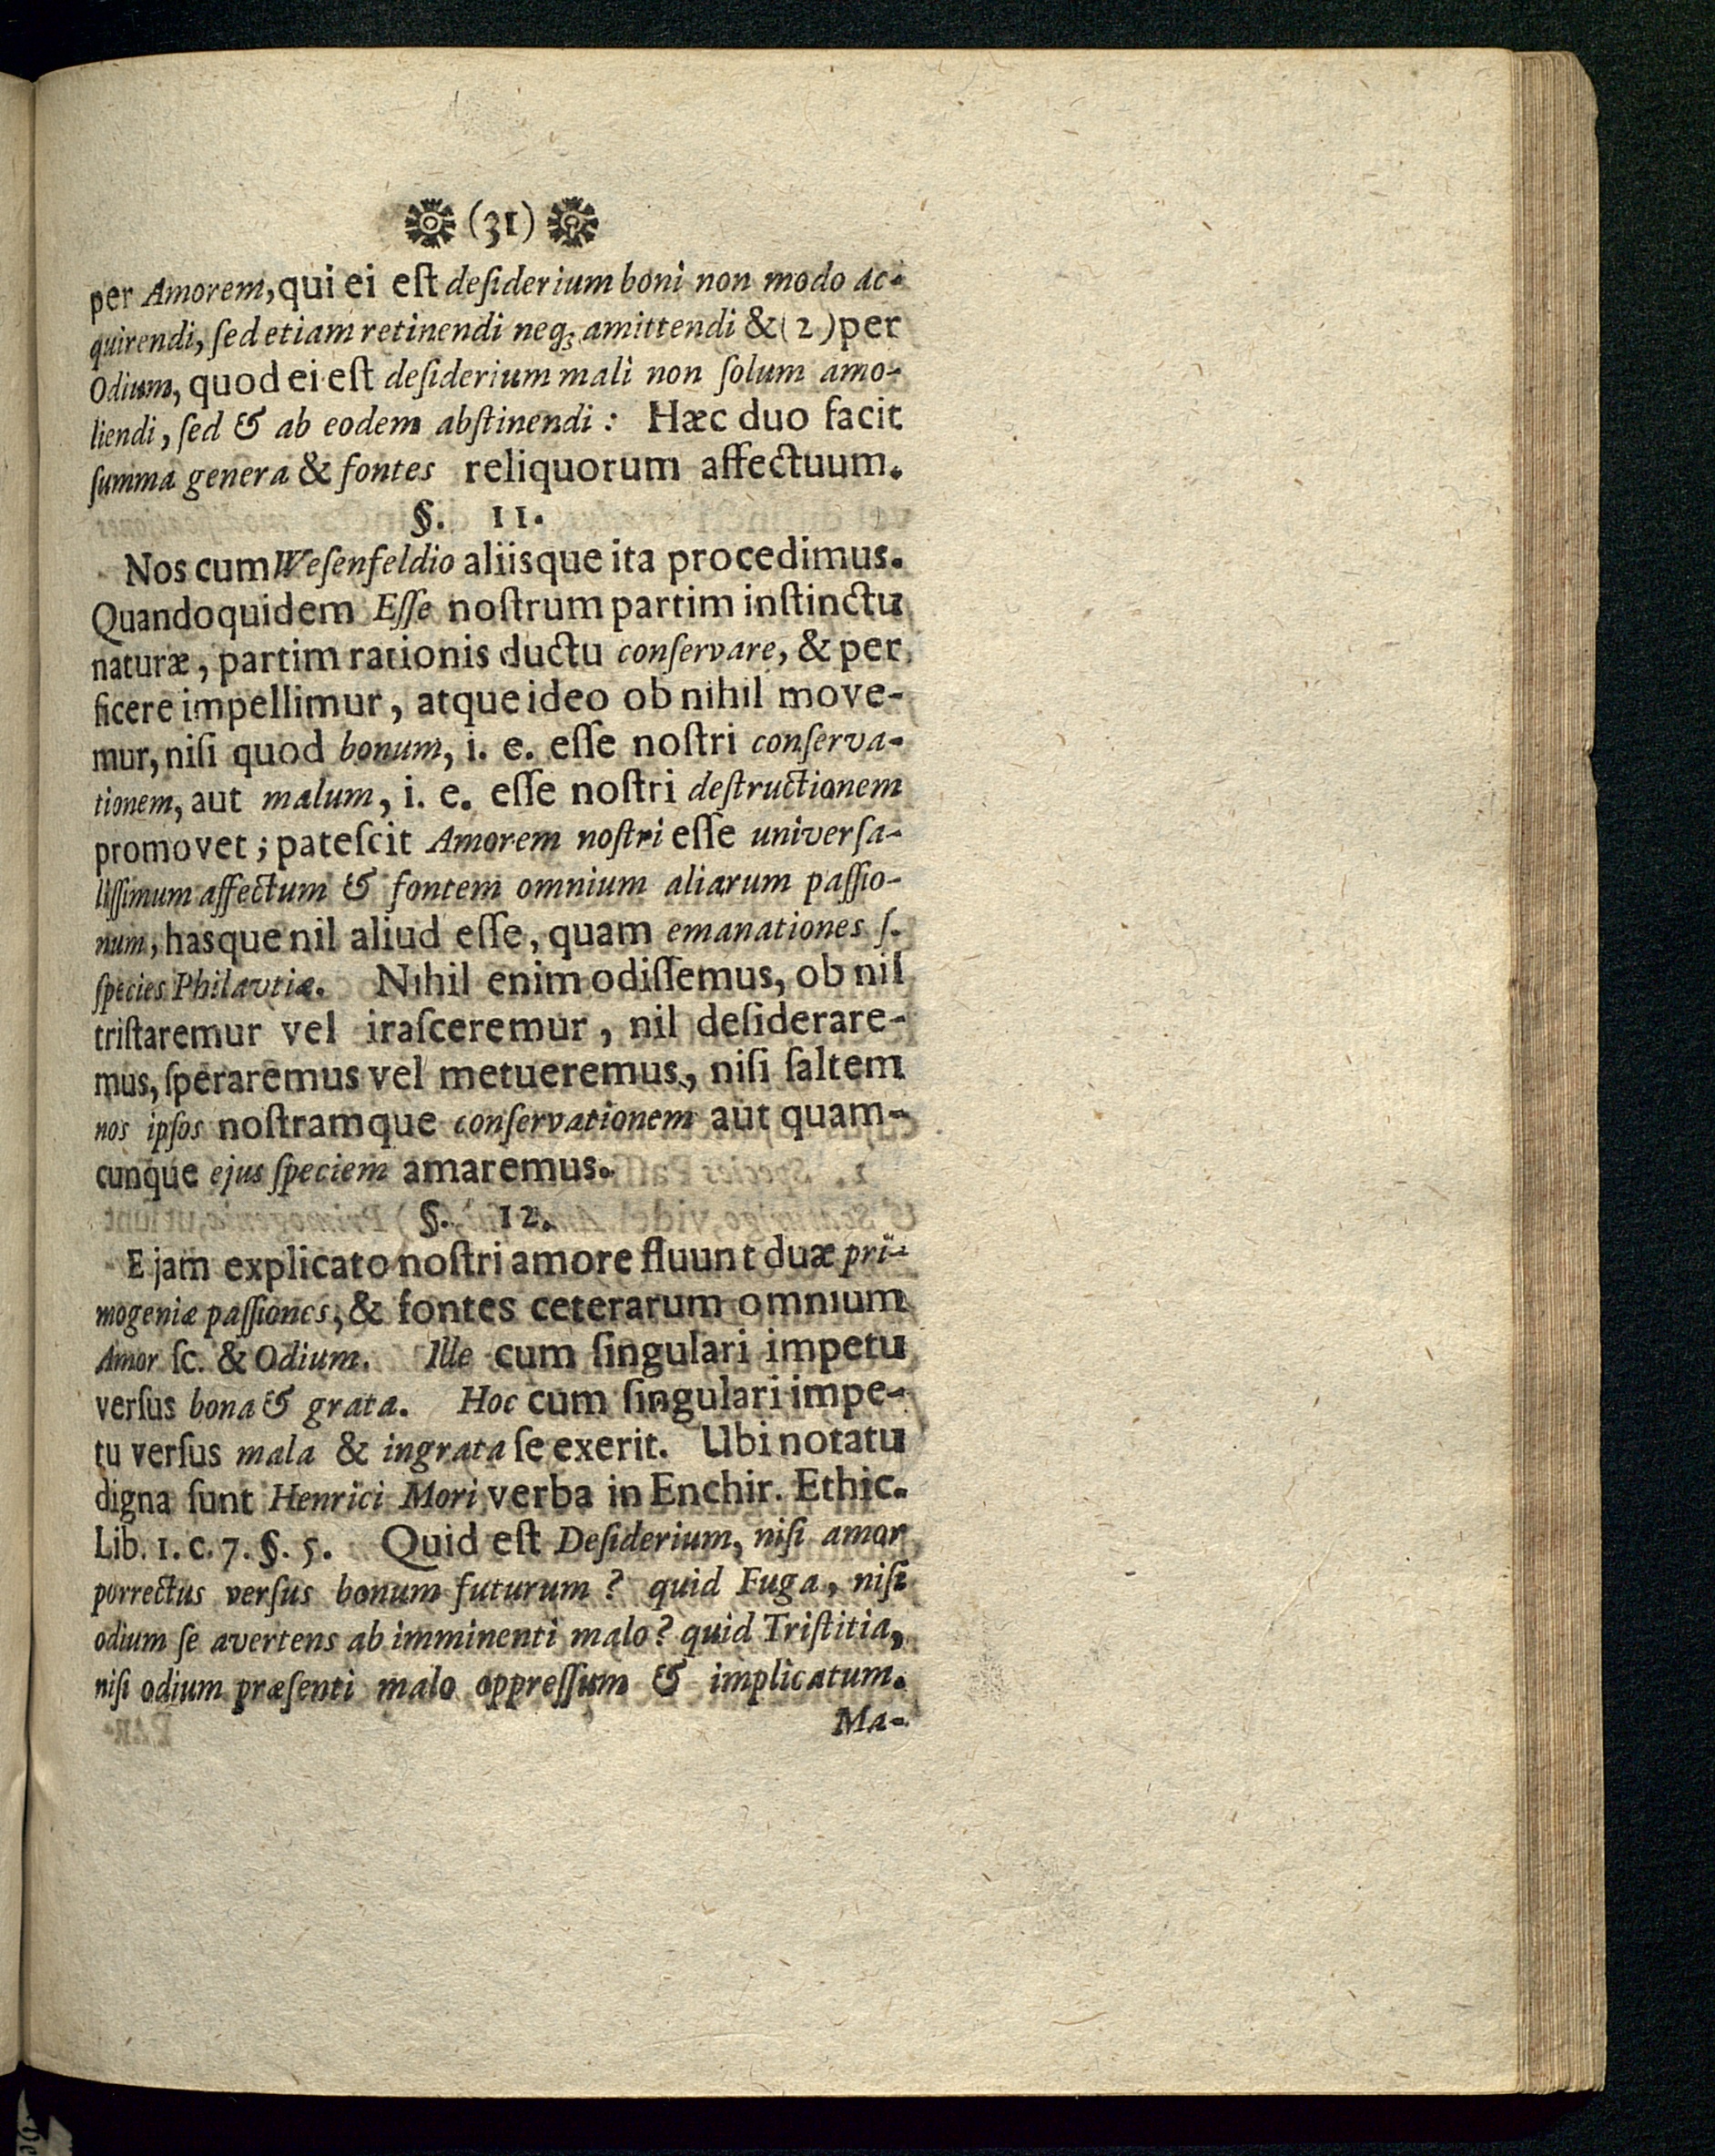 (31)
per Amorem, qui ei eſt deſiderium boni non modo ac-
quirendi, ſed etiam retinendi neqꝫ amittendi & (2) per
Odium, quod ei eſt deſiderium mali non ſolum amo-
liendi, ſed & ab eodem abſtinendi: Hæc duo facit
ſumma genera & fontes reliquorum affectuum.
§. 11.
Nos cum Weſenfeldio aliisque ita procedimus.
Quandoquidem Eſſe noſtrum partim inſtinctu
naturæ, partim rationis ductu conſervare, & per
ficere impellimur, atque ideo ob nihil move-
mur, niſi quod bonum, i. e. eſſe noſtri conſerva-
tionem, aut malum, i. e. eſſe noſtri deſtructionem
promovet; pateſcit Amorem noſtri eſſe univerſa-
liſſimum affectum & fontem omnium aliarum paſſio-
num, hasque nil aliud eſſe, quam emanationes ſ.
ſpecies Philavtiæ. Nihil enim odiſſemus, ob nil
triſtaremur vel iraſceremur, nil deſiderare-
mus, ſperaremus vel metueremus, niſi ſaltem
nos ipſos noſtramque conſervationem aut quam-
cunque ejus ſpeciem amaremus.
§. 12.
E jam explicato noſtri amore fluunt duæ pri-
mogeniæ paſſiones, & fontes ceterarum omnium
Amor ſc. & Odium. Ille cum ſingulari impetu
verſus bona & grata. Hoc cum ſingulari impe-
tu verſus mala & ingrata ſe exerit. Ubi notatu
digna ſunt Henrici Mori verba in Enchir. Ethic.
Lib. 1. c. 7. §. 5. Quid eſt Deſiderium, niſi amor
porrectus verſus bonum futurum? quid Fuga, niſi
odium ſe avertens ab imminenti malo? quid Triſtitia,
niſi odium præſenti malo oppreſſum & implicatum.
Ma-